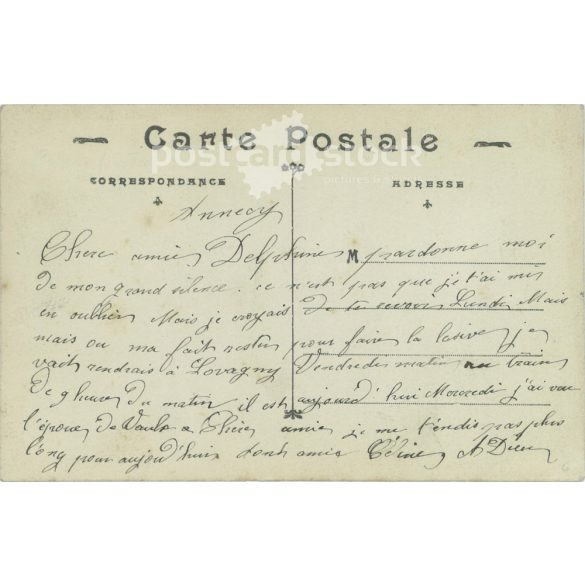 Carte Postale
postcard stock
pictures &
CORRESPONDANCE ADRESSE
Annecy
Chere amie Delphine M pardonne moi
de mon grand silence. ce n'est pas que je t'ai mis
en oublier Mais je croyais de te revoir Lundi Mais
mais ou ma fait rester pour faire la lesive je
vait rendrais à Lovagny Vendredi matin au train
De 9 heures Du matin il est aujourd'hui Mercredi j'ai vue
l'épouse de Vaulx Chère amie je me t'endis pas plus
l'ong pour aujourd'huis amie Céline A Dieu